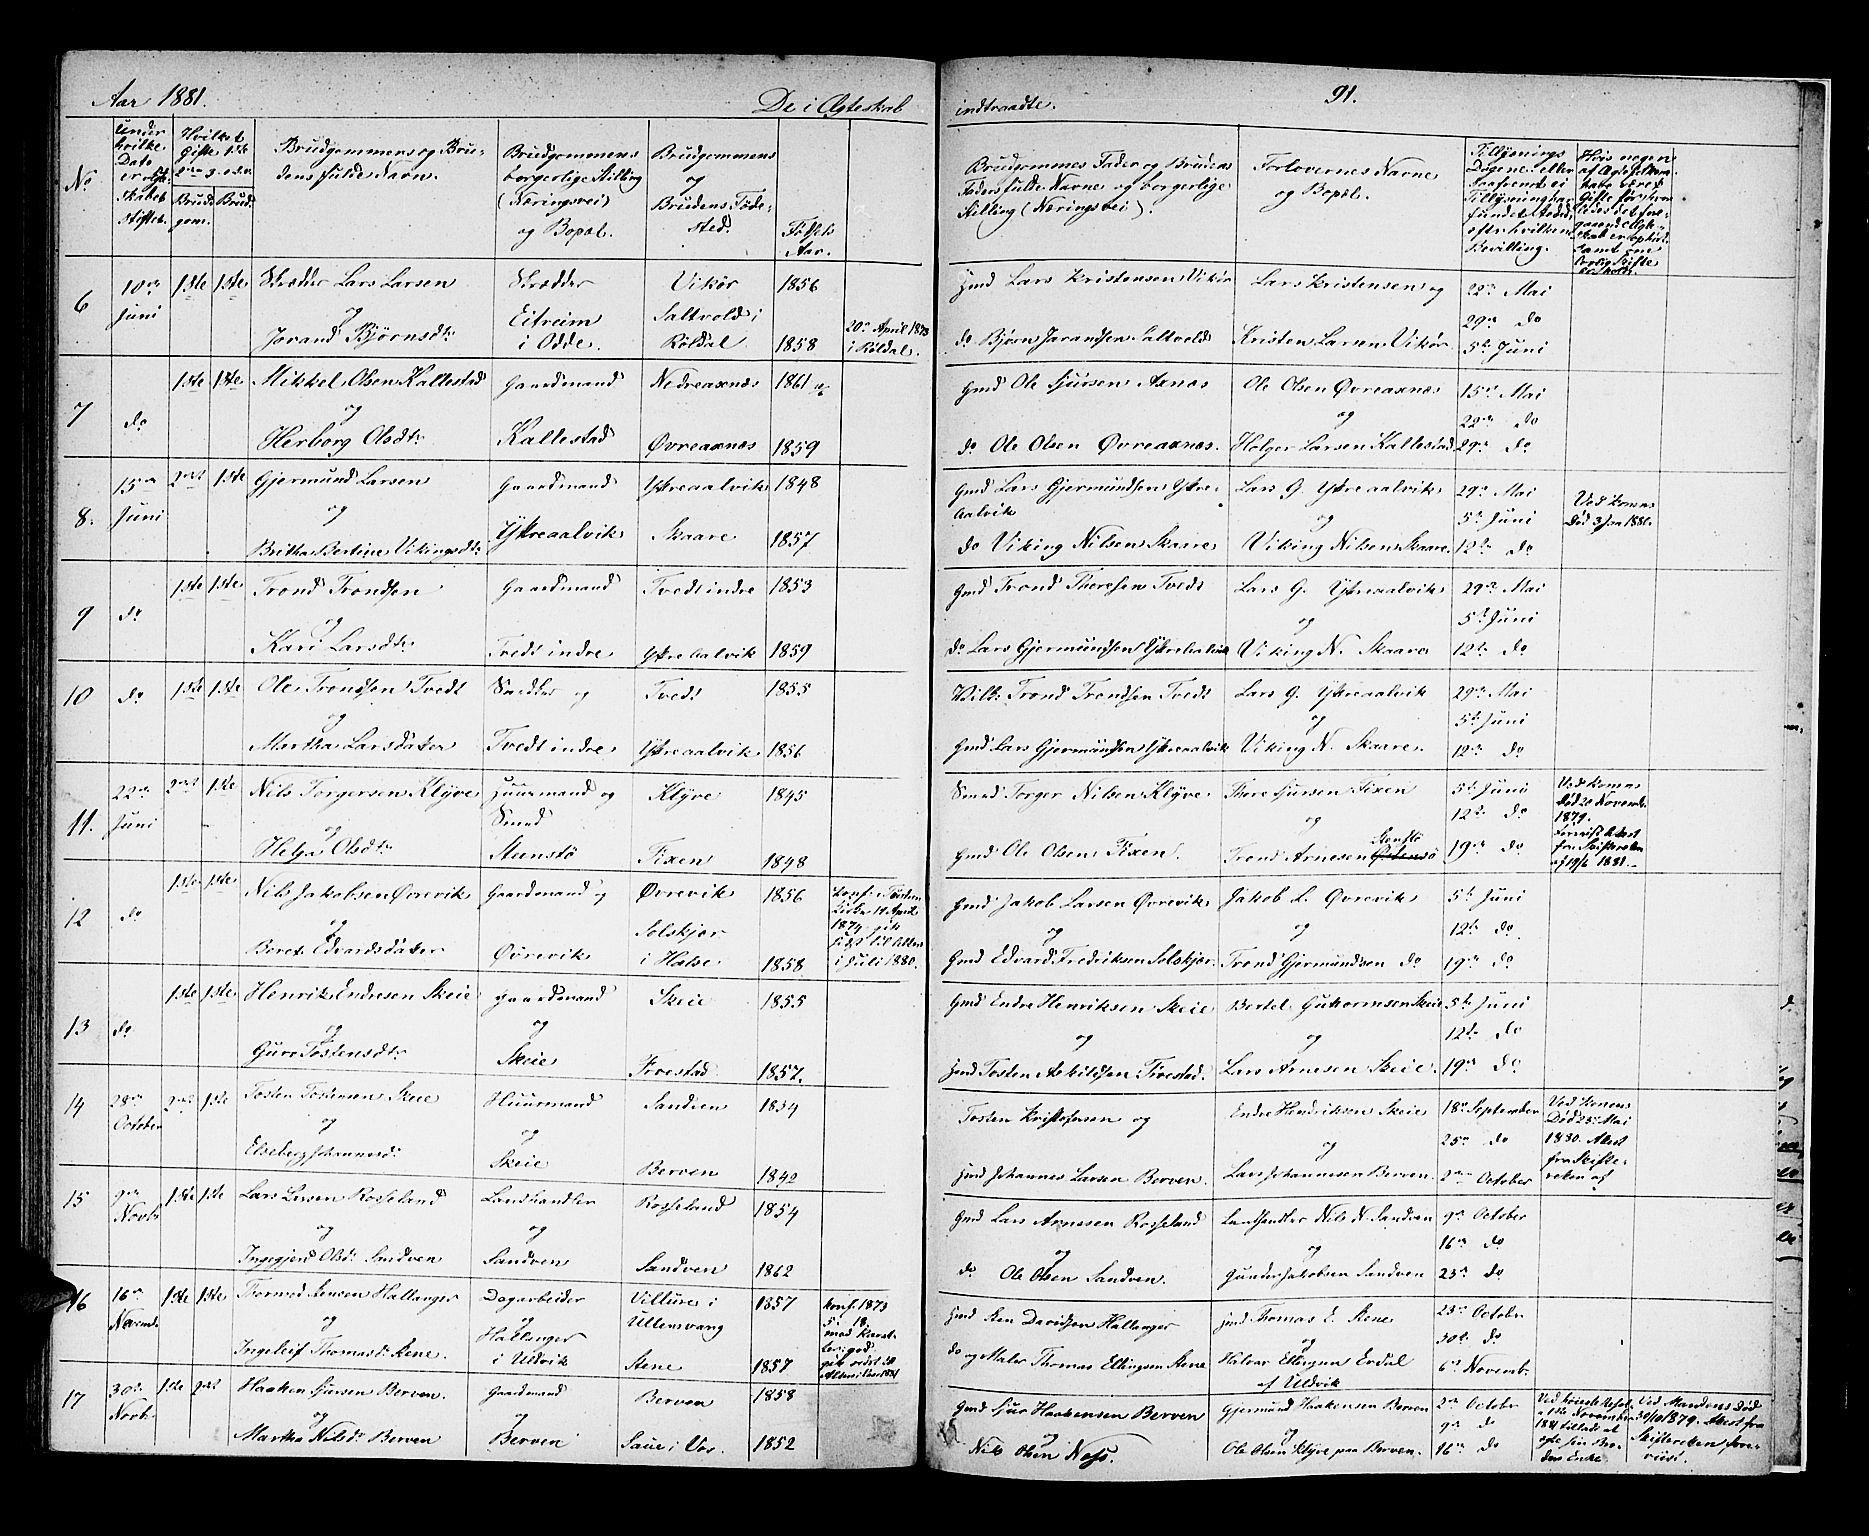 Aar 1881.
De i Ægteskab indtraadte.
91.
No
Under hvilken Dato er Ægteskabet stiftet.
Hvilket Gifte 1ste 2den 3. o.s.v.
Brudgom.
Brud.
Brudgommens og Brudens fulde Navn.
Brudgommens borgerlige Stilling (Næringsvei) og Bopæl.
Brudgommens og Brudens Fødested.
Fødsels Aar.
Brudgommes Fader og Brudens Faders fulde Navne og borgerlige Stilling (Næringsvei).
Forlovernes Navne og Bopæl.
Tillysnings Dagene eller
6 10de Juni 1ste 1ste Skrædder Lars Larsen og Jorand Bjørnsdtr
Skrædder Eitreim i Odde.
Vikør 1856
Saltvold i Røldal 1858
20de April 1873 i Røldal.
Hmd Lars Kristensen Vikør
do Bjørn Jarandsen Saltvold
Lars Kristensen og Kristen Larsen Vikør
22de Mai
29de do
5te Juni
7 do 1ste 1ste Mikkel Olsen Kallestad og Herborg Olsdtr
Gaardmand Kallestad
Nedreaxnes 1861
Øvreaxnes 1859
Gmd Ole Sjursen Axnes
do Ole Olsen Øvreaxnes.
Ole Olsen Øvreaxnes og Holger Larsen Kallestad
15de Mai
22de do
29de do
8. 15de Juni 2det 1ste Gjermund Larsen og Britha Bertine Vikingsdtr
Gaardmand Ytreaalvik
Ytreaalvik 1848
Skaare 1857
Gmd Lars Gjermundsen Ytreaalvik
do Viking Nilsen Skaare
Lars G. Ytreaalvik og Viking Nilsen Skaare.
29de Mai
5te Juni
12te do
Ved Konens Død 3 Jan 1881.
9 do 1ste 1ste Trond Trondsen og Kari Larsdtr
Gaardmand Tvedt indre
Tvedt indre 1853
Ytre Aalvik 1859
Gmd Trond Thoresen Tvedt
do Lars Gjermundsen Ytreaalvik
Lars G. Ytreaalvik og Viking N. Skaare
29de Mai
5te Juni
12te do
10 do 1ste 1ste Ole Trondsen Tvedt og Martha Larsdatter
Snedker og Tvedt indre
Tvedt 1855
Ytreaalvik 1856
Trond Trondsen Tvedt
Gmd Lars Gjermundsen Ytreaalvik
Lars G. Ytreaalvik og Viking N. Skaare.
29de Mai
5te Juni
12te do
11. 22de Juni 2det 1ste Nils Torgersen Klyve og Helga Olsdtr
Huurmand og Smed Steinstø
Klyve 1845
Fixen 1848
Smed Torger Nilsen Klyve
Gmd Ole Olsen Fixen.
Thore Sjursen Fixen og Trond Arnesen Stenstø
5te Juni
12te do
19de do
Ved Konens Død 20 Novemb. 1879. Forevist Attest fra Skifteretten af 19/6 1881.
12 do 1ste 1ste Nils Jakobsen Øvrevik og Beret Edvardsdatter
Gaardmand og Øvrevik
Øvrevik 1856
Solskjær i Halse 1858
Gmd Jakob Larsen Øvrevik og
Gmd Edvard Fredriksen Solskjær.
Jakob L. Øvrevik og Trond Gjermundsen do
5te Juni
12te do
19de do
13 do 1ste 1ste Henrik Endresen Skeie og Guro Tostensdtr
Gaardmand og Skeie
Skeie 1855
Fivestad 1857.
Gmd Endre Henriksen Skeie og
Hmd Tosten Askildsen Fivestad.
Bertel Guttormsen Skeie og Lars Arnesen Skeie.
5te Juni
12te do
19de do
14 28de October 2det 1ste Tosten Tostensen Skeie og Elseberg Johannesd.
Huurmand og Skeie
Sandven 1834
Berven 1842
Tosten Kristofersen og
Hmd Johannes Larsen Berven.
Endre Hendriksen Skeie og Lars Johannesen Berven.
18de September
25de do
2den October
Ved Konens Død 25de Mai 1880. Attest fra Skifteretten af
15 9de Novb. 1ste 1ste Lars Larsen Rosseland og Ingegjerd Olsd. Sandven
Landhandler og Sandven
Rosseland 1854
Sandven 1862
Gmd Lars Arnesen Rosseland og
do Ole Olsen Sandven.
Landhandler Nils N. Sandven og Gunder Jakobsen Sandven
9de October
16de do
23de do
16 16de Novemb. 1ste 1ste Tormod Stensen Hallanger og Ingeleif Thomasd. Stene.
Dagarbeider og Hallanger i Uldvik
Villure i Ullensvang 1857
Stene 1857
Hmd Sten Davidsen Hallanger
do og Maler Thomas Ellingsen Stene
Hmd Thomas E. Stene og Halvar Ellingsen Erdal af Uldvik
23de October
30te do
6te Novemb.
17 30te Novb. 1ste 2det Haaken Sjursen Berven. og Martha Nilsd. Berven
Gaardmand og Berven
Berven 1858
Saue i Vos. 1852
Gmd Sjur Haakensen Berven og Nils Olsen Næss.
Gjermund Haakensen Berven og Ole Olsen Klyve paa Berven.
2den Octobr
9de do
16de do
Ved Mandens Død 30/10 1879. Attest fra Skifteretten forevist.